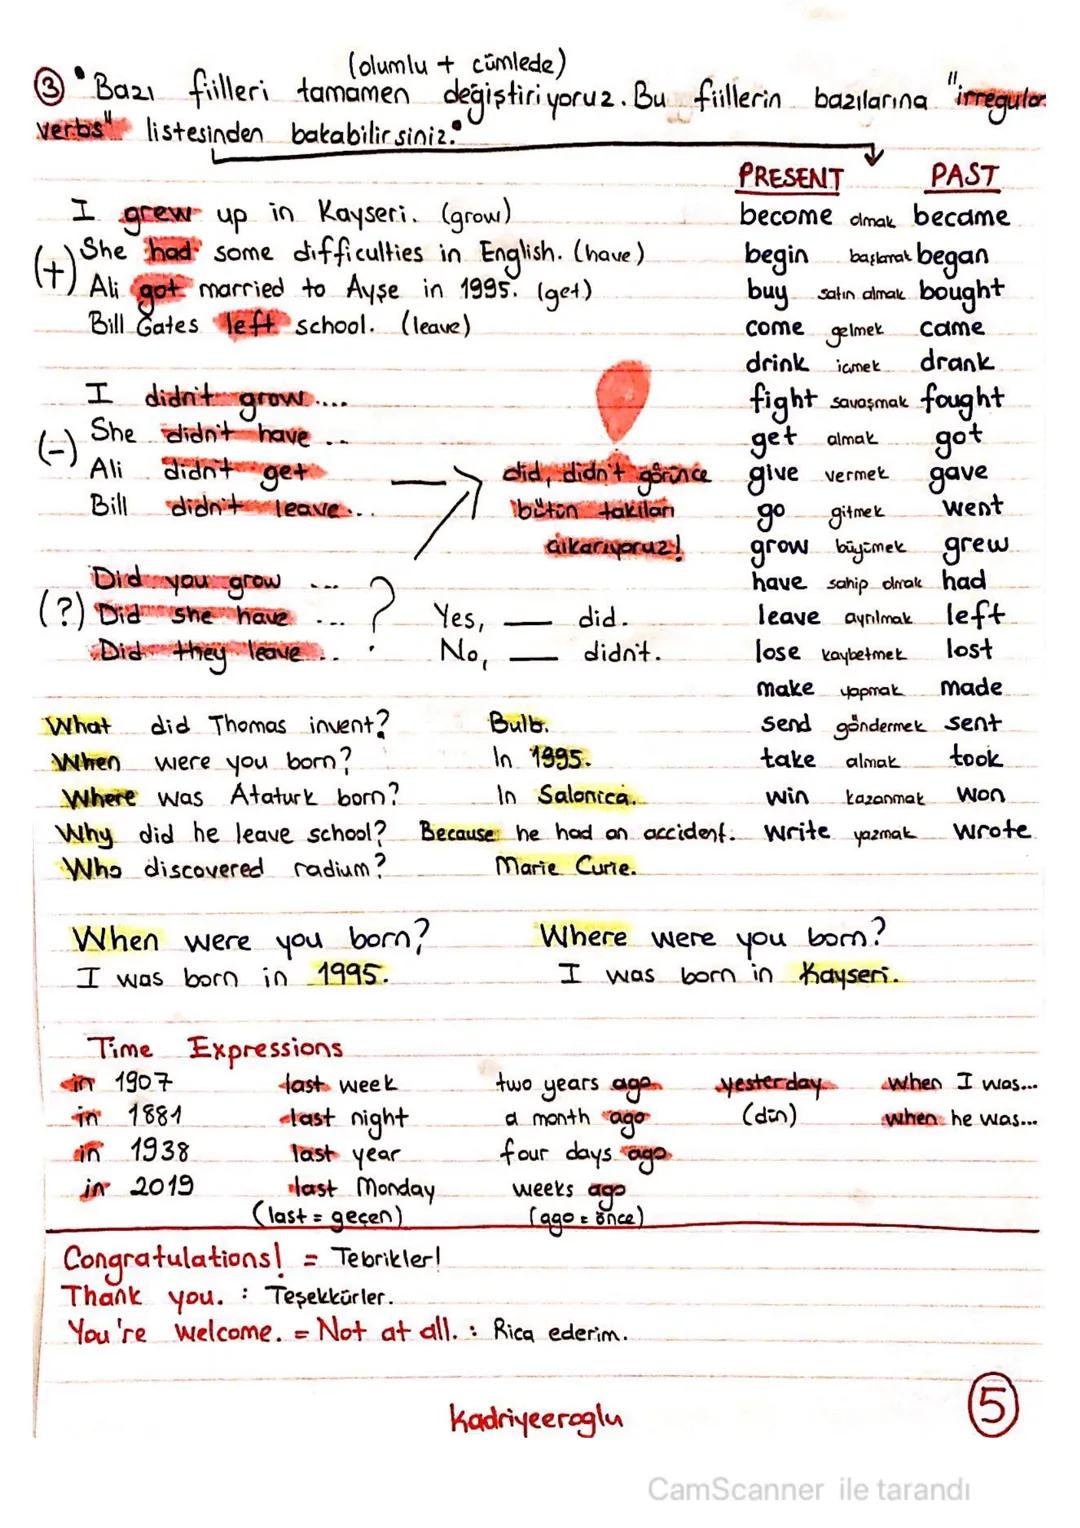 (olumlu + cümlede)
③ • Bazı fiilleri tamamen değiştiriyoruz. Bu fiillerin bazılarına "irregular
verbs" listesinden bakabilirsiniz.•
I grew up in Kayseri. (grow)
(+) She had some difficulties in English. (have)
Ali got married to Ayşe in 1995. (get)
Bill Gates left school. (leave)
I didn't grow....
(-) She didn't have ...
Ali didn't get
Bill didn't leave...
did, didn't görünce
bütün takıları
çıkarıyoruz!
Did you grow ...
(?) Did she have ... ?
Did they leave ..
Yes, __ did.
No, __ didn't.
PRESENT PAST
become olmak became
begin başlamak began
buy satın almak bought
come gelmek came
drink içmek drank
fight savaşmak fought
get almak got
give vermek gave
go gitmek went
grow büyümek grew
have sahip olmak had
leave ayrılmak left
lose kaybetmek lost
make yapmak made
send göndermek sent
take almak took
win kazanmak won
write yazmak wrote
What did Thomas invent? Bulb.
When were you born? In 1995.
Where was Atatürk born? In Salonica.
Why did he leave school? Because he had an accident.
Who discovered radium? Marie Curie.
When were you born? Where were you born?
I was born in 1995. I was born in Kayseri.
Time Expressions
in 1907 last week two years ago yesterday when I was...
in 1881 last night a month ago (dün) when he was...
in 1938 last year four days ago
in 2019 last Monday weeks ago
(last = geçen) (ago = önce)
Congratulations! = Tebrikler!
Thank you. : Teşekkürler.
You're welcome. = Not at all. : Rica ederim.
kadriyeeroglu
5
CamScanner ile tarandı